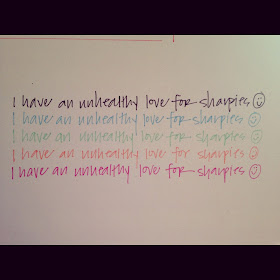 I have an unhealthy love for sharpies ☺
I have an unhealthy love for sharpies ☺
I have an unhealthy love for sharpies ☺
I have an unhealthy love for sharpies ☺
I have an unhealthy love for sharpies ☺